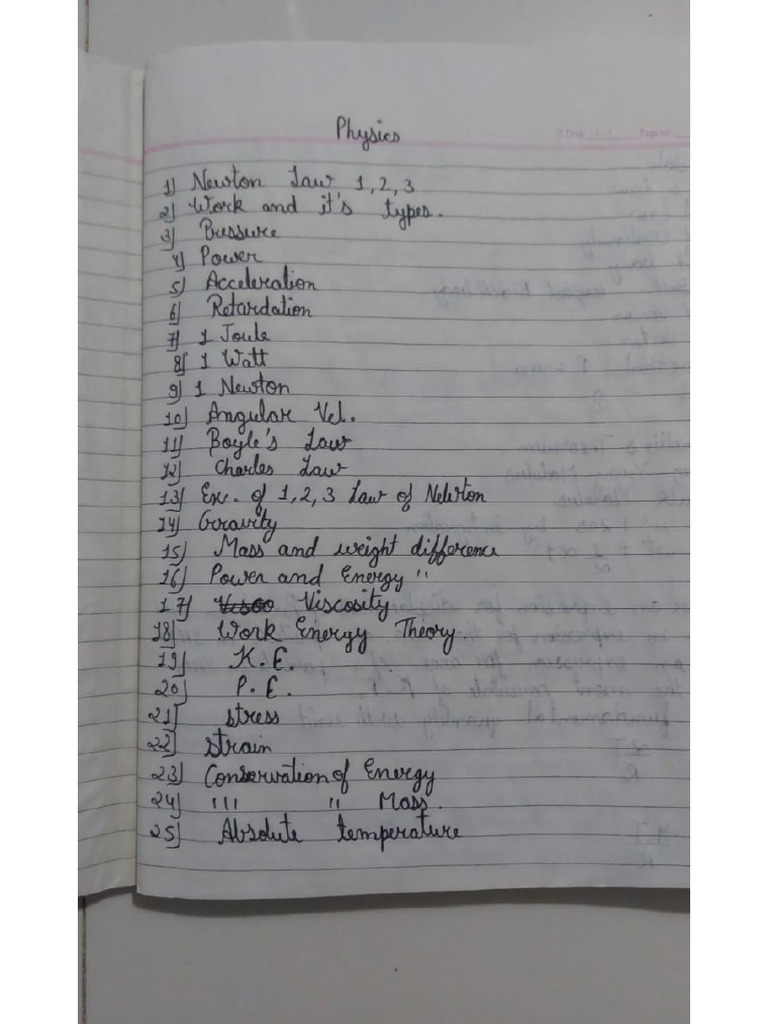 Physics
1) Newton Law 1, 2, 3
2) Work and it's types.
3) Pressure
4) Power
5) Acceleration
6) Retardation
7) 1 Joule
8) 1 Watt
9) 1 Newton
10) Angular Vel.
11) Boyle's Law
12) Charles Law
13) Ex. of 1, 2, 3 Law of Newton
14) Gravity
15) Mass and weight difference
16) Power and Energy "
17) Viscosity
18) Work Energy Theory.
19) K.E.
20) P.E.
21) stress
22) strain
23) Conservation of Energy
24) "' " Mass.
25) Absolute temperature